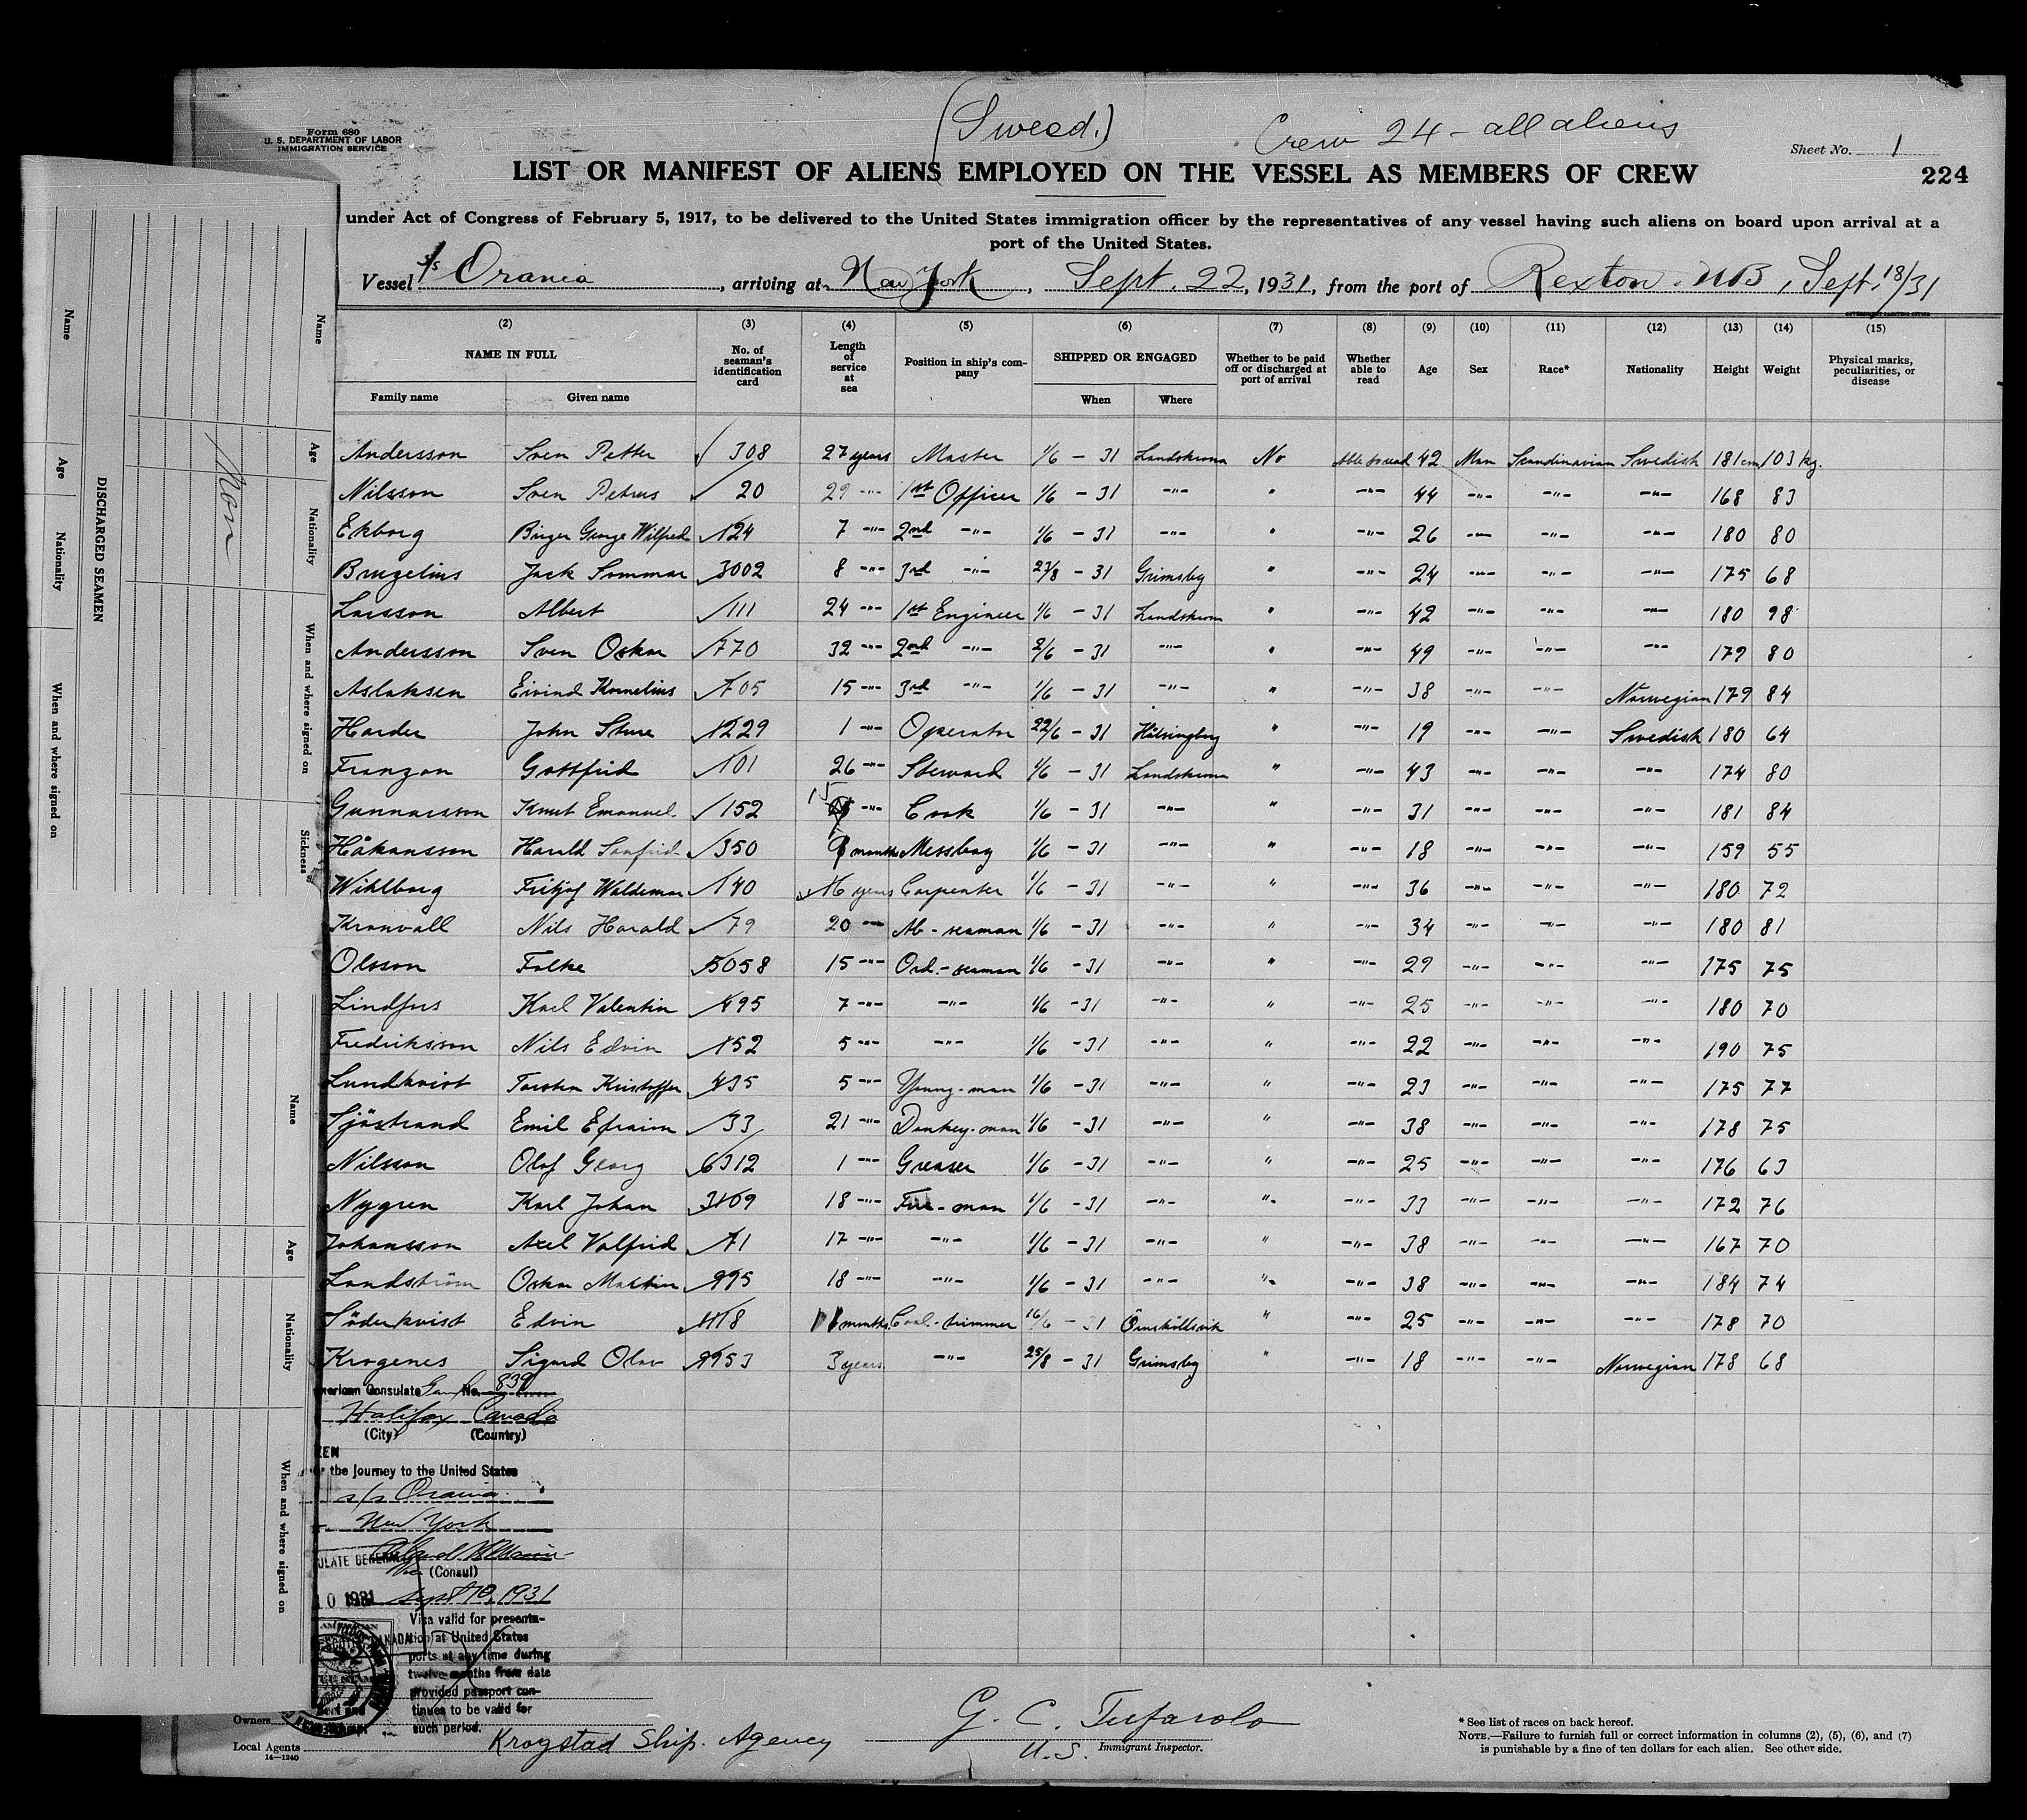 (Sweed.)
Crew 24 - all aliens
Form 680
U. S. DEPARTMENT OF LABOR
IMMIGRATION SERVICE
Sheet No. 1
LIST OR MANIFEST OF ALIENS EMPLOYED ON THE VESSEL AS MEMBERS OF CREW
224
under Act of Congress of February 5, 1917, to be delivered to the United States immigration officer by the representatives of any vessel having such aliens on board upon arrival at a
port of the United States.
Vessel s/s Orania, arriving at New York, Sept. 22, 1931, from the port of Rexton. NB, Sept. 18/31
(2) (3) (4) (5) (6) (7) (8) (9) (10) (11) (12) (13) (14) (15)
NAME IN FULL No. of seaman's identification card Length of service at sea Position in ship's company SHIPPED OR ENGAGED Whether to be paid off or discharged at port of arrival Whether able to read Age Sex Race* Nationality Height Weight Physical marks, peculiarities, or disease
Family name Given name When Where
Andersson Sven Petter 308 27 years Master 1/6 - 31 Landskrona No Able to read 42 Man Scandinavian Swedish 181 cm 103 kg.
Nilsson Sven Petrus 20 29 -"- 1st Officer 1/6 - 31 -"- " -"- 44 -"- -"- -"- 168 83
Ekborg Birger George Wilfred 124 7 -"- 2nd -"- 1/6 - 31 -"- " -"- 26 -"- -"- -"- 180 80
Bruzelius Jack Sommar 3002 8 -"- 3rd -"- 23/8 - 31 Grimsby " -"- 24 -"- -"- -"- 175 68
Larsson Albert 111 24 -"- 1st Engineer 1/6 - 31 Landskrona " -"- 42 -"- -"- -"- 180 98
Andersson Sven Oskar 770 32 -"- 2nd -"- 2/6 - 31 -"- " -"- 49 -"- -"- -"- 179 80
Aslaksen Eivind Kornelius 705 15 -"- 3rd -"- 1/6 - 31 -"- " -"- 38 -"- -"- Norwegian 179 84
Harder John Sture 1229 1 -"- Operator 22/6 - 31 Hälsingborg " -"- 19 -"- -"- Swedish 180 64
Franzon Gottfrid 101 26 -"- Steward 1/6 - 31 Landskrona " -"- 43 -"- -"- -"- 174 80
Gunnarsson Knut Emanuel 152 15 -"- Cook 1/6 - 31 -"- " -"- 31 -"- -"- -"- 181 84
Håkansson Harald Sanfrid 350 9 months Messboy 1/6 - 31 -"- " -"- 18 -"- -"- -"- 159 55
Wihlborg Fritjof Waldemar 140 16 years Carpenter 1/6 - 31 -"- " -"- 36 -"- -"- -"- 180 72
Kronvall Nils Harald 79 20 -"- Ab - seaman 1/6 - 31 -"- " -"- 34 -"- -"- -"- 180 81
Olsson Folke 5058 15 -"- Ord. - seaman 1/6 - 31 -"- " -"- 29 -"- -"- -"- 175 75
Lindfors Karl Valentin 495 7 -"- -"- 1/6 - 31 -"- " -"- 25 -"- -"- -"- 180 70
Fredriksson Nils Edvin 152 5 -"- -"- 1/6 - 31 -"- " -"- 22 -"- -"- -"- 190 75
Lundkvist Torsten Kristoffer 435 5 -"- Young-man 1/6 - 31 -"- " -"- 23 -"- -"- -"- 175 77
Sjöstrand Emil Efraim 33 21 -"- Donkey-man 1/6 - 31 -"- " -"- 38 -"- -"- -"- 178 75
Nilsson Olof Georg 6312 1 -"- Greaser 1/6 - 31 -"- " -"- 25 -"- -"- -"- 176 63
Nygren Karl Johan 3109 18 -"- Fire - man 1/6 - 31 -"- " -"- 33 -"- -"- -"- 172 76
Johansson Axel Valfrid 71 17 -"- -"- 1/6 - 31 -"- " -"- 38 -"- -"- -"- 167 70
Landström Oskar Martin 995 18 -"- -"- 1/6 - 31 -"- " -"- 38 -"- -"- -"- 184 74
Söderkvist Edvin 418 11 months Coal-trimmer 16/6 - 31 Örnsköldsvik " -"- 25 -"- -"- -"- 178 70
Krogenes Sigurd Olav 9953 3 years -"- 25/8 - 31 Grimsby " -"- 18 -"- -"- Norwegian 178 68
merican Consulate Gen'l No. 839
Halifax Canada
(City) (Country)
EEN
the Journey to the United States
s/s Orania
New York
ULATE GENERAL
(Consul)
10 1931 Sept 10, 1931
Visa valid for presenta-
tion at United States
ports at any time during
twelve months from date
provided passport con-
tinues to be valid for
such period.
Owners
Local Agents Krogstad Ship. Agency
14-1240
G. C. Tufarolo
U.S. Immigrant Inspector.
* See list of races on back hereof.
NOTE.—Failure to furnish full or correct information in columns (2), (5), (6), and (7)
is punishable by a fine of ten dollars for each alien. See other side.
DISCHARGED SEAMEN
Name Age Nationality When and where signed on
Name Age Nationality When and where signed on Sickness
Name Age Nationality When and where signed on